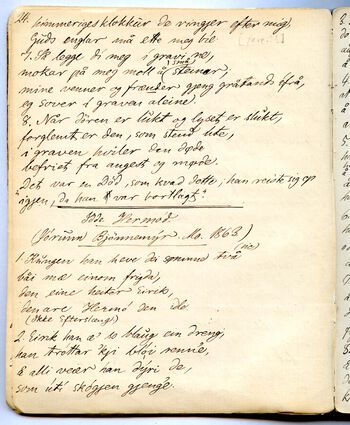 24. himmeriges klokkur de ringjer efter mig,
Guds englar må ette meg bie
7. Så legge di meg i gravi ne,
mokar på meg moll å steinar
mine venner og frender gjeng gråtand ifrå,
eg sover i gravas aleine.
8. Når dören er lukt og lyset er slukt,
forglemt er den, som stend ute,
i graven hviler den döde
befriet fra angest og möde.
Det var en död, som kvad dette, han reiste sig op
igjen, da han var bortlagt.
Unge Hermod
(Jórunn Bjönnemyr, Mo. 1863)
1 Kungen han heve dei sönnine två
båi mæ einom frygda,
den eine heitar Eirek,
den are Hermo den
(Ikke Efterslæng)
2. Eirek han æ so blaug ein dreng,
han tröttar kji blói renne,
Å alli veier han dýri de,
som uti skógjen gjenge.